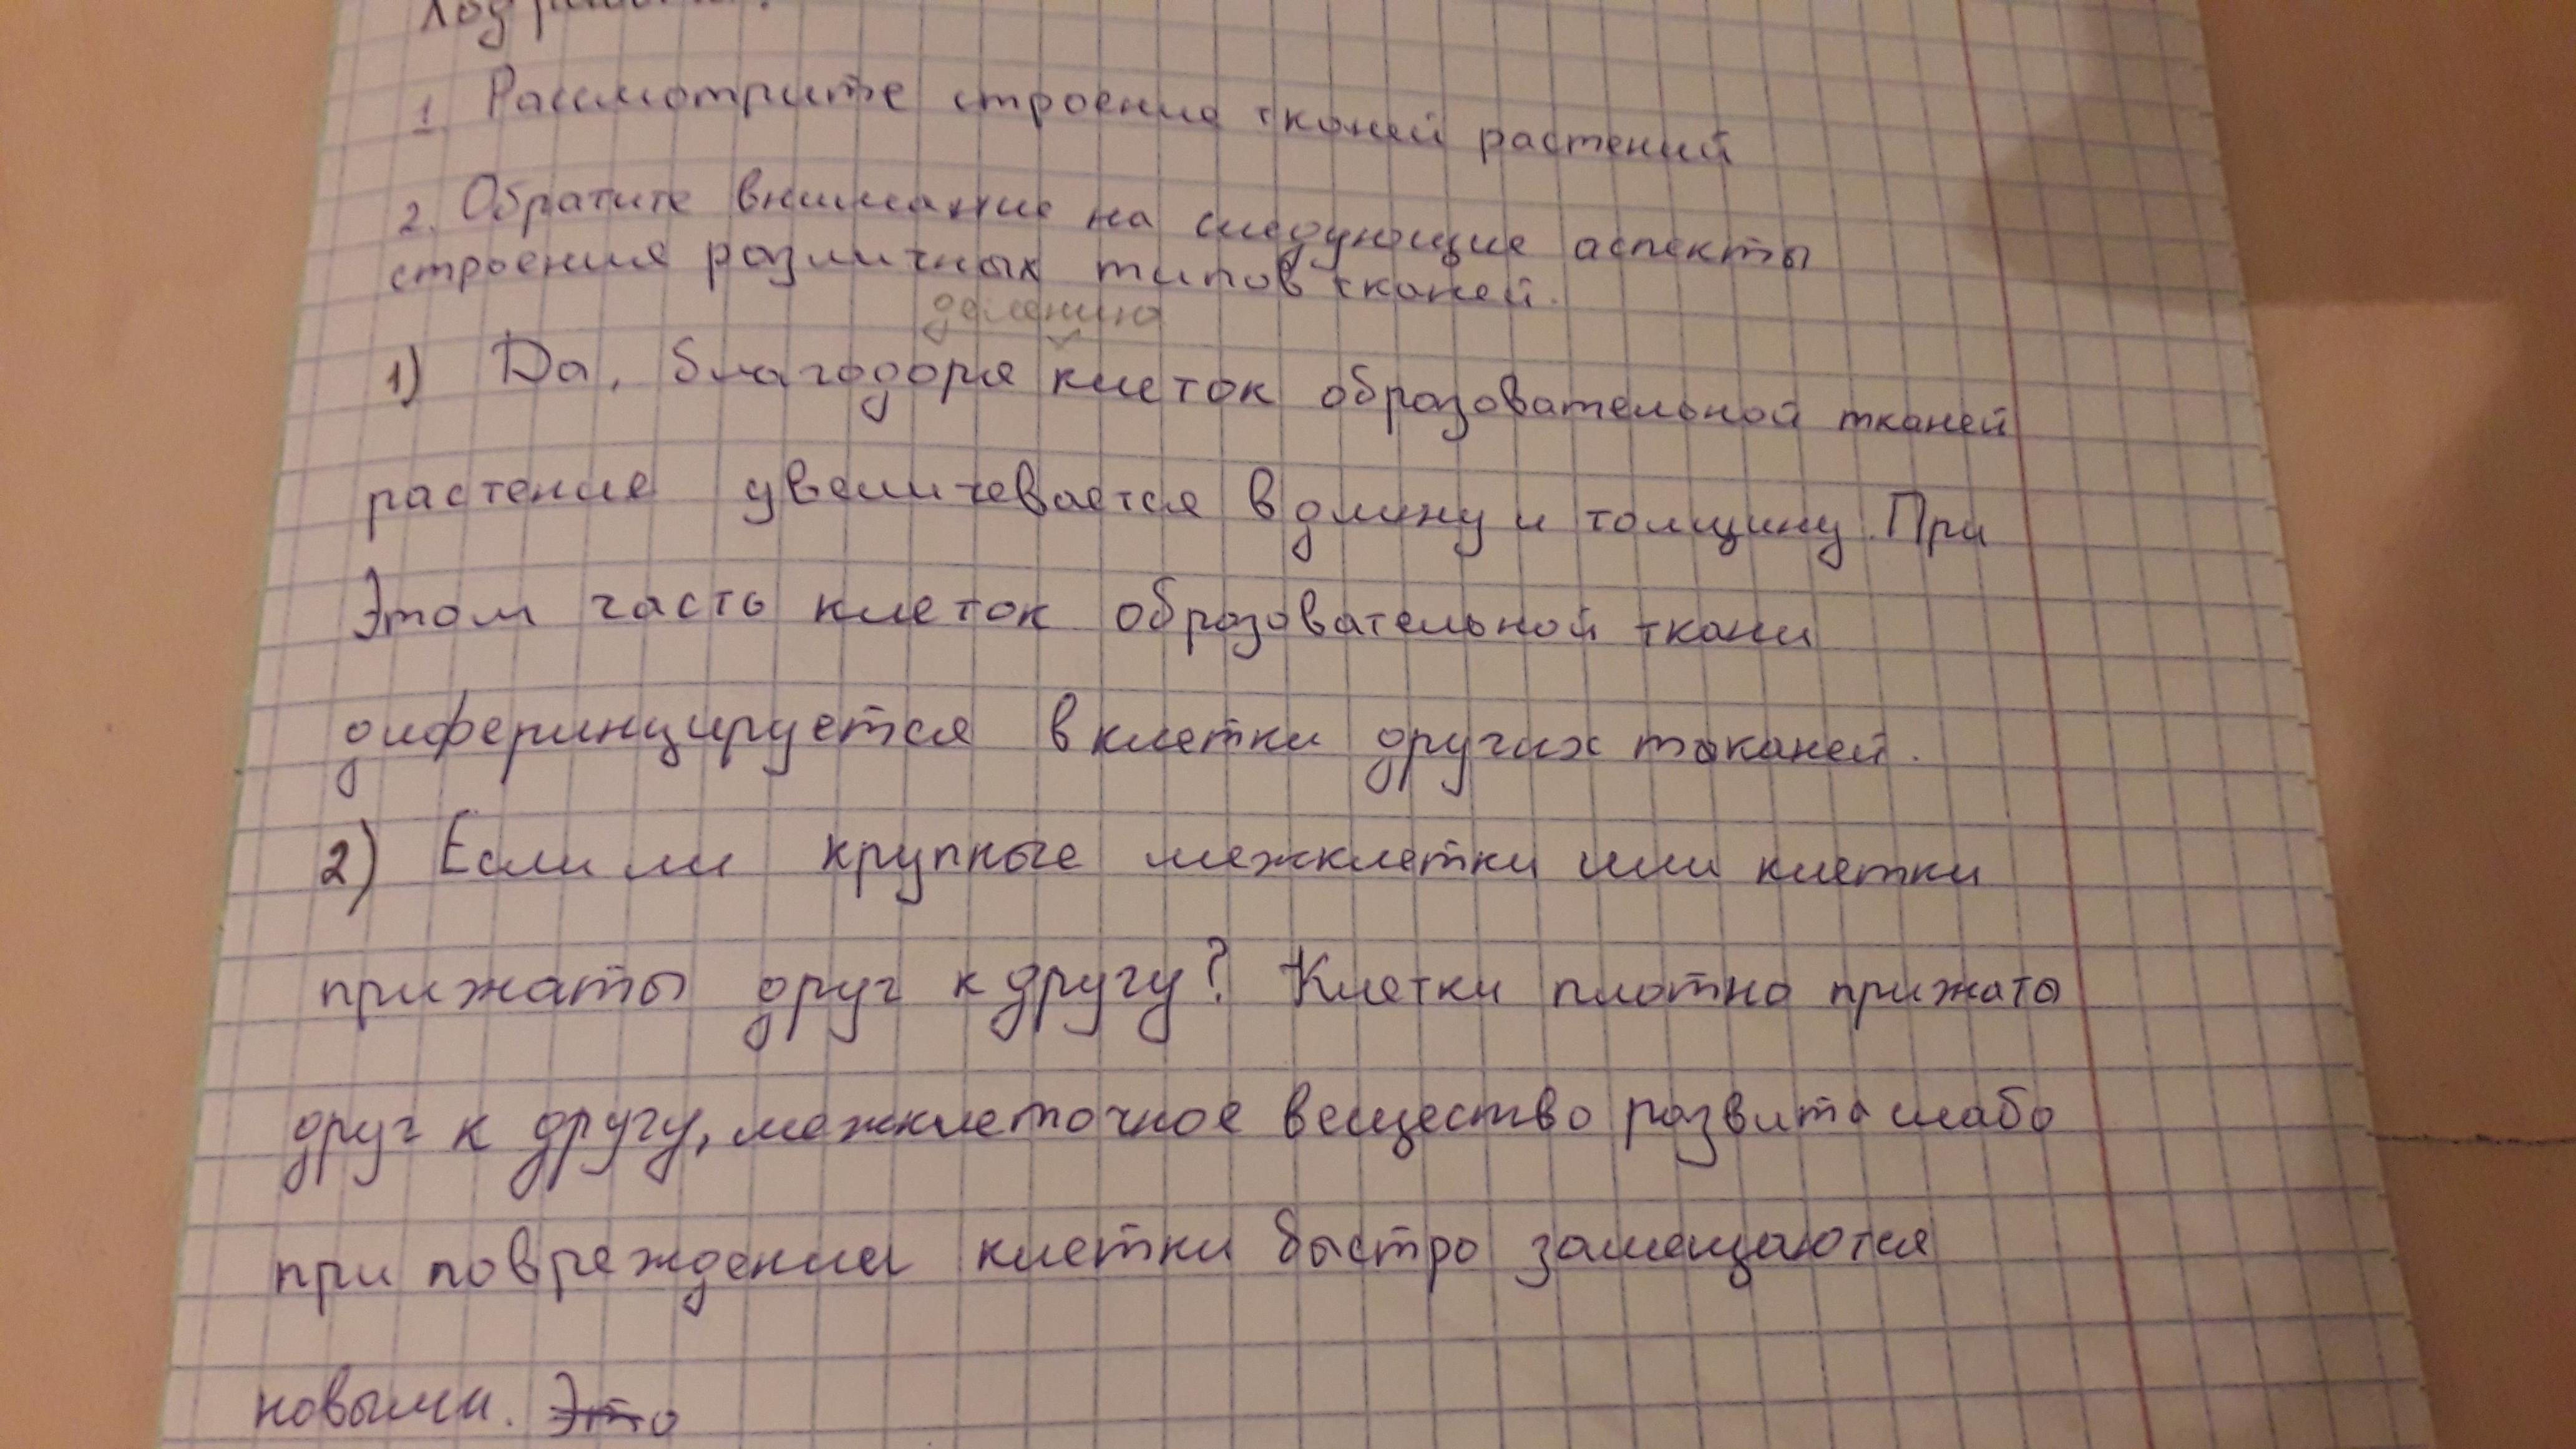 Ход работы:
1 Рассмотрите строение тканей растений
2. Обратите внимание на следующие аспекты
строения различных типов тканей.
делению
1) Да, благодоря клеток образовательной тканей
растение увеличевается в длину и толщину. При
Этом часть клеток образовательной ткани
диферинцируется в клетки других тканей.
2) Если ли крупные межклетки или клетки
прижаты друг к другу? Клетки плотно прижато
друг к другу, межклеточное вещество развито слабо
при повреждении клетки быстро замещаются
новыми. Это